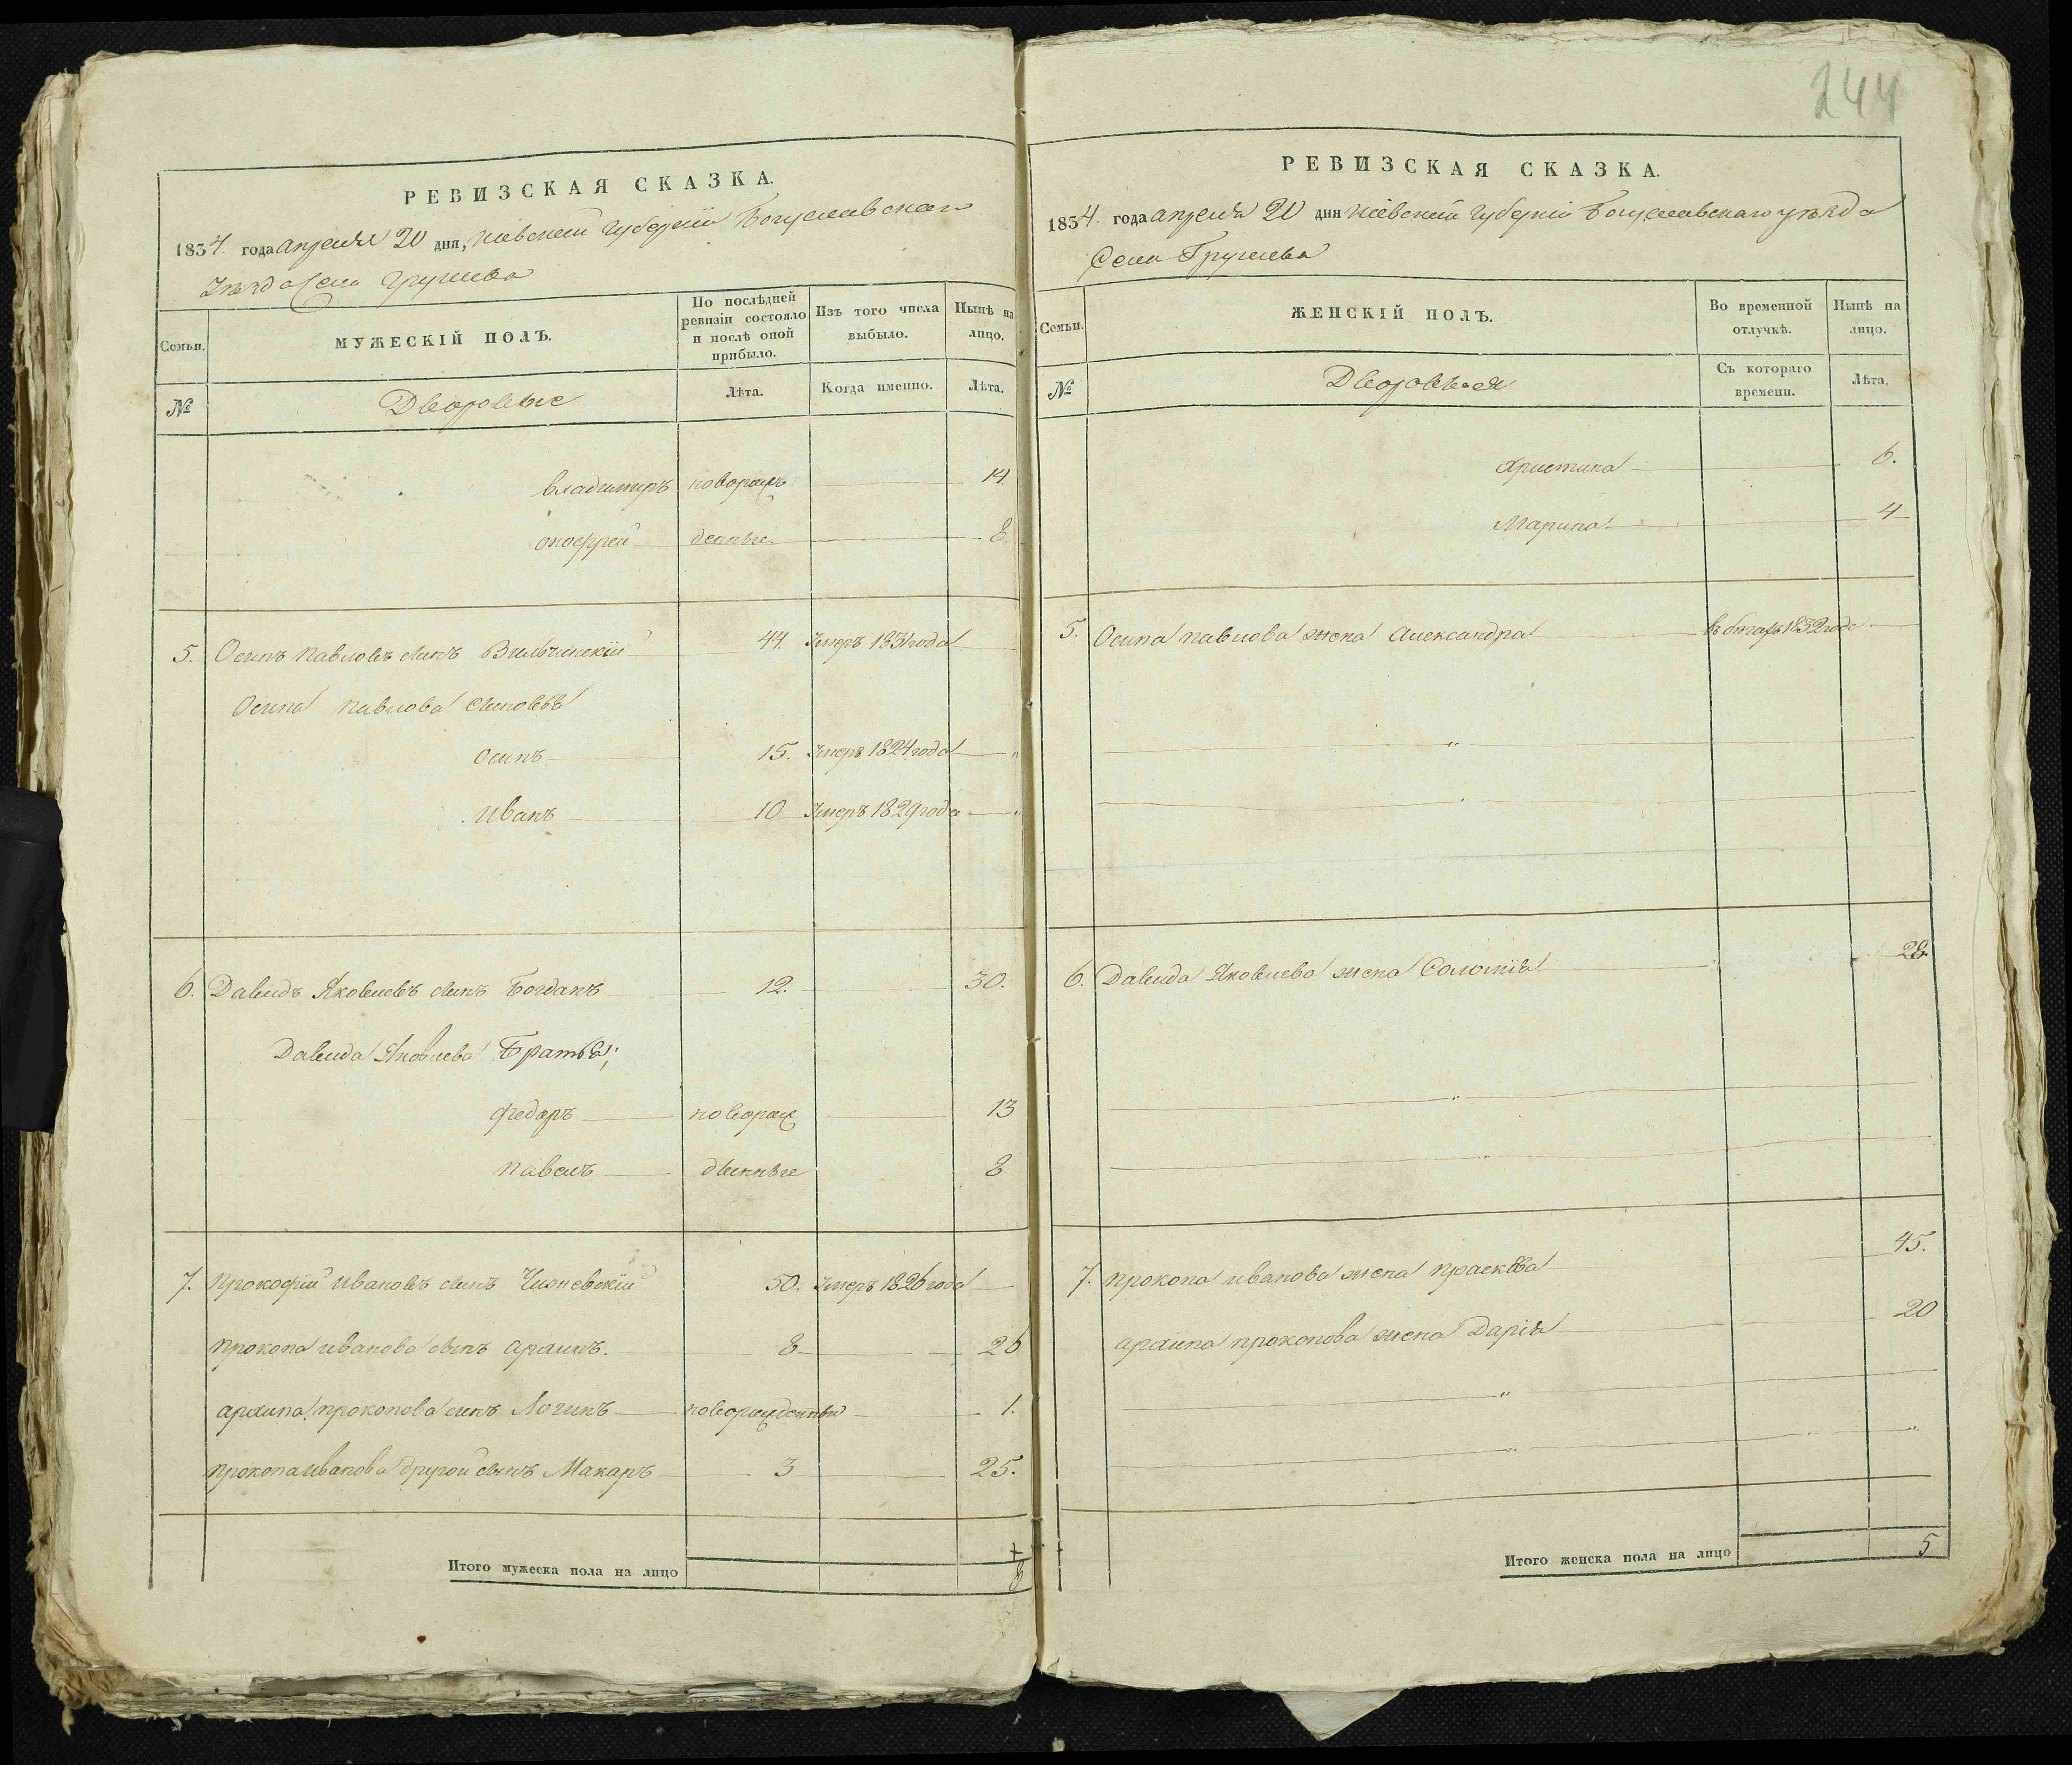 РЕВИЗСКАЯ СКАЗКА.
1834. года апреля 20 дня, Кіевской губерніи Богуславскаго
Уѣзда Села Грушева
Семьи. МУЖЕСКІЙ ПОЛЪ. По послѣдней ревизіи состояло и послѣ оной прибыло. Изъ того числа выбыло. Нынѣ на лицо.
№ Дворовые Лѣта. Когда именно. Лѣта.
владимиръ новорож 14.
оноффрей денные. 8.
5. Осипъ павловъ сынъ Вильчинскій 44. Умеръ 1831 года
Осипа павлова сыновья
осипъ 15. Умеръ 1824 года "
иванъ 10 Умеръ 1829 года "
6. Давидъ Яковлевъ сынъ Богданъ 12. 30.
Давида Яковлева Братья;
федоръ новорож 13
павелъ денные 8
7. прокофій ивановъ сынъ 50. Умеръ 1826 года
прокопа иванова сынъ архипъ. 8 26
архипа прокопова сынъ Логинъ новорожденный 1.
прокопа иванова другой сынъ Макаръ 3 25.
Итого мужеска пола на лицо 8
244
РЕВИЗСКАЯ СКАЗКА.
1834. года апреля 20 дня Кіевской губерніи Богуславскаго уѣзда
Села Грушева
Семьи. ЖЕНСКІЙ ПОЛЪ. Во временной отлучкѣ. Нынѣ на лицо.
№ Дворовыя Съ котораго времени. Лѣта.
христина 6.
Марина 4
5. Осипа павлова жена александра въ бѣгахъ 1832 года
"
"
6. Давида Яковлева жена Соломія 28
"
"
7. прокопа иванова жена прасковья 45.
архипа прокопова жена Дарія 20
"
"
Итого женска пола на лицо 5